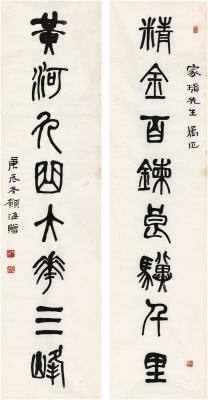 家 先生 屬正
精金百鍊良驥千里
黃河九曲大華三峰
庚辰冬